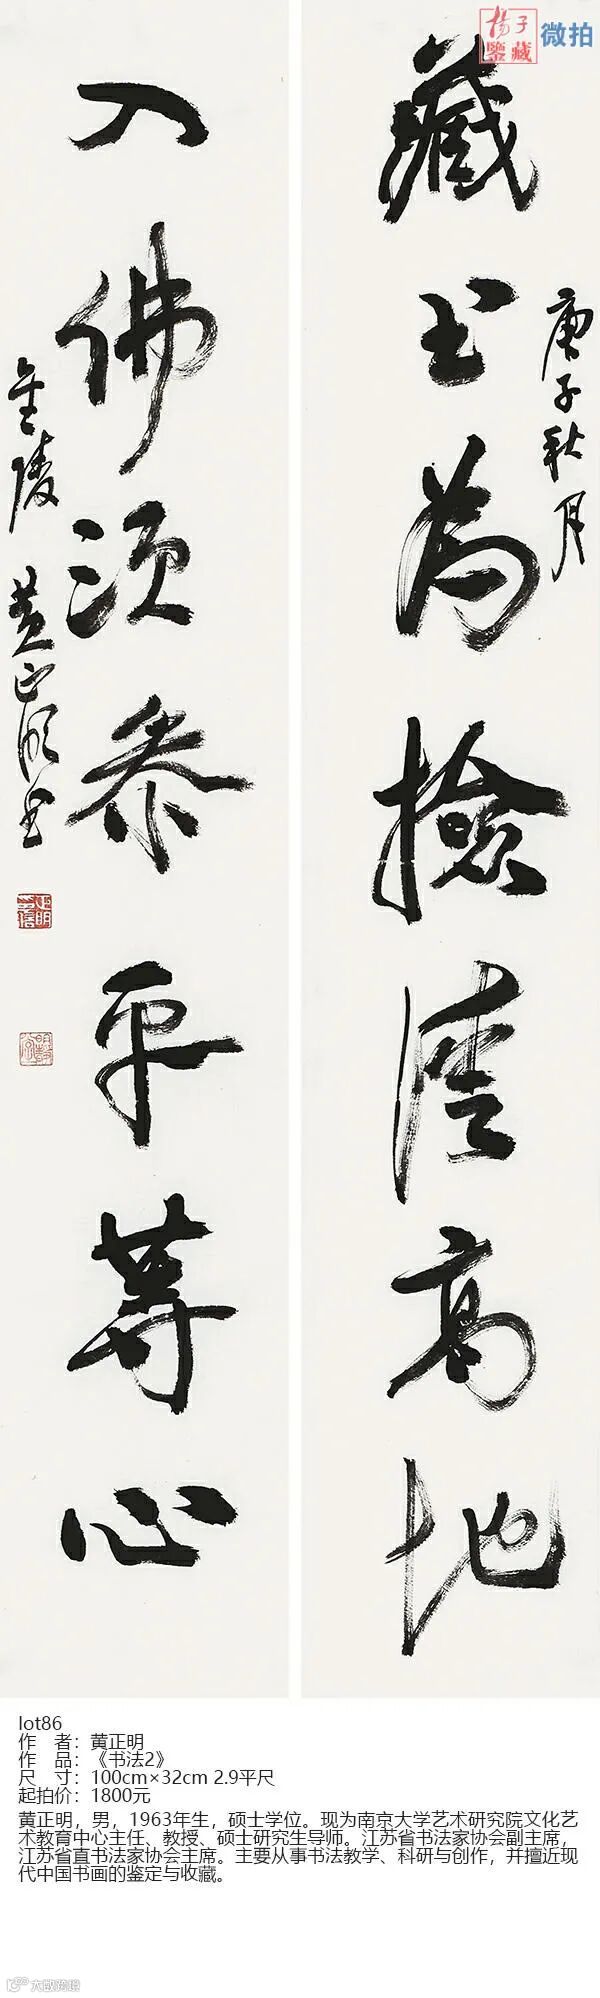 揚子
鑒藏
微拍
藏书为捡清高地
庚子秋月
入佛须参平等心
金陵 黄正明书
lot86
作 者：黄正明
作 品：《书法2》
尺 寸：100cm×32cm 2.9平尺
起拍价：1800元
黄正明，男，1963年生，硕士学位。现为南京大学艺术研究院文化艺
术教育中心主任、教授、硕士研究生导师。江苏省书法家协会副主席，
江苏省直书法家协会主席。主要从事书法教学、科研与创作，并擅近现
代中国书画的鉴定与收藏。